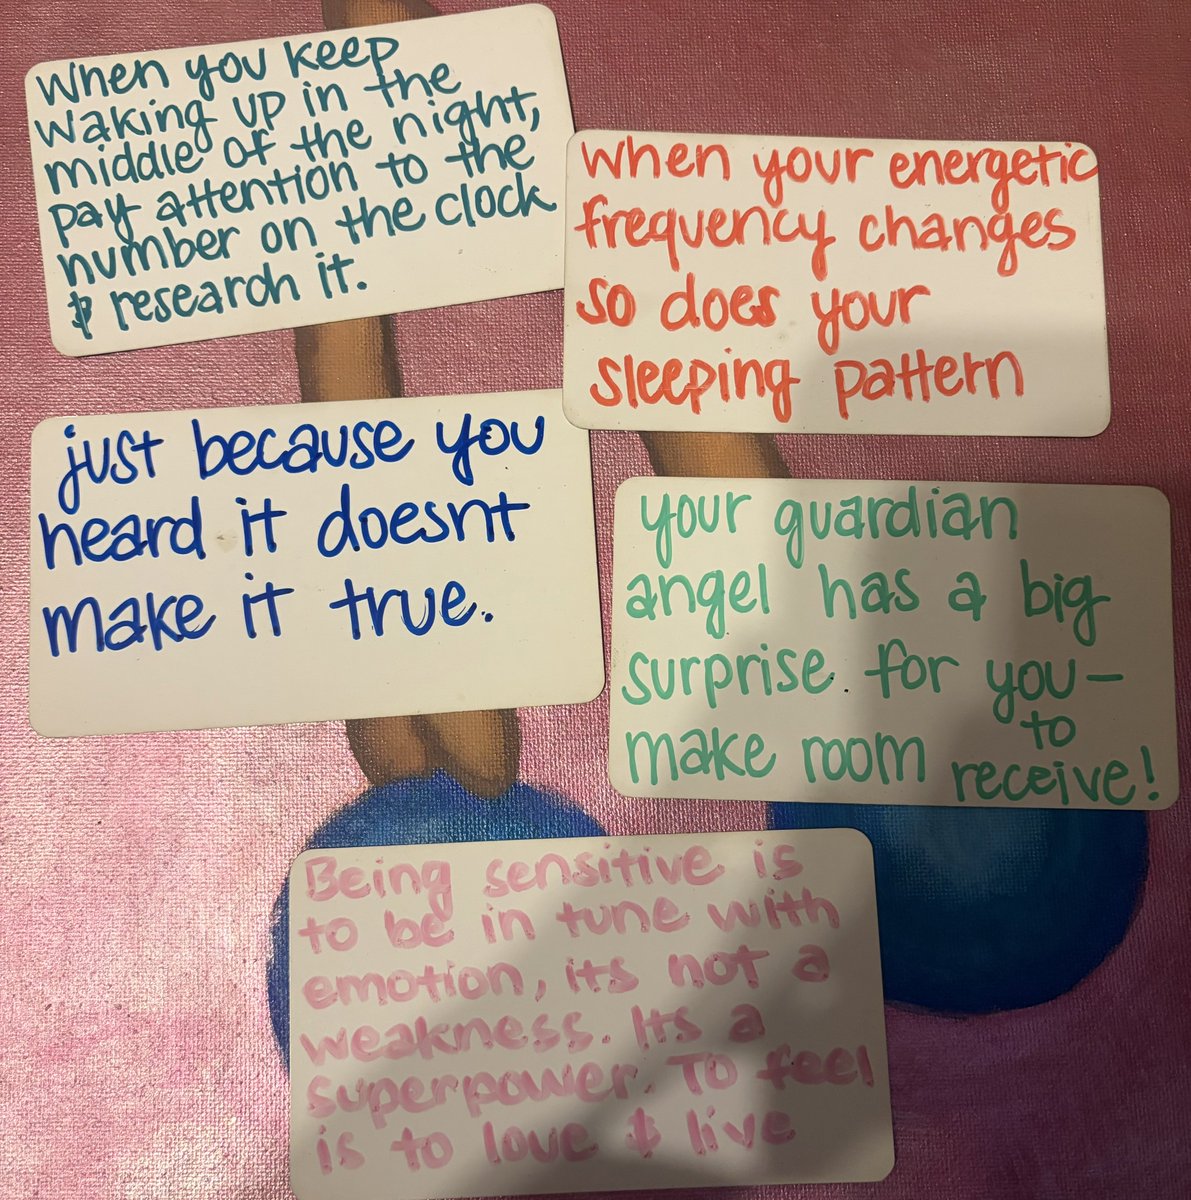 When you keep
waking up in the
middle of the night,
pay attention to the
number on the clock
& research it.
when your energetic
frequency changes
so does your
sleeping pattern
just because you
heard it doesnt
make it true.
your guardian
angel has a big
surprise for you-
make room to
receive!
Being sensitive is
to be in tune with
emotion, its not a
weakness. Its a
superpower. To feel
is to love & live